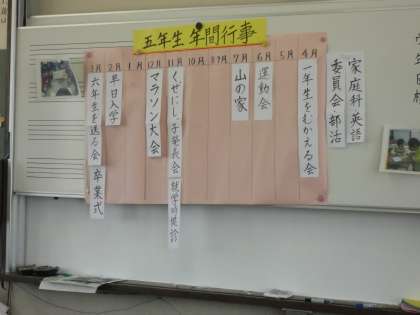 五年生 年間行事
家庭科 英語
委員会・部活
4月
一年生をむかえる会
5月
6月
運動会
7月
山の家
8.9月
10月
11月
くぜにし子発表会 就学時検診
12月
マラソン大会
1月
2月
半日入学
3月
六年生を送る会 卒業式